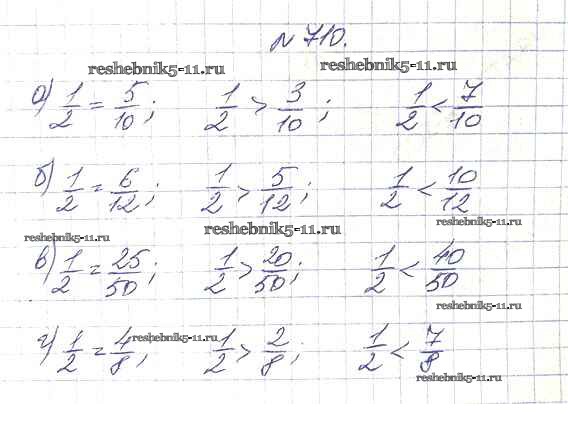 № 710.
reshebnik5-11.ru reshebnik5-11.ru
а) 1/2 = 5/10; 1/2 > 3/10; 1/2 < 7/10
б) 1/2 = 6/12; 1/2 > 5/12; 1/2 < 10/12
reshebnik5-11.ru reshebnik5-11.ru reshebnik5-11.ru
в) 1/2 = 25/50; 1/2 > 20/50; 1/2 < 40/50
reshebnik5-11.ru
г) 1/2 = 4/8; 1/2 > 2/8; 1/2 < 7/8
reshebnik5-11.ru
reshebnik5-11.ru